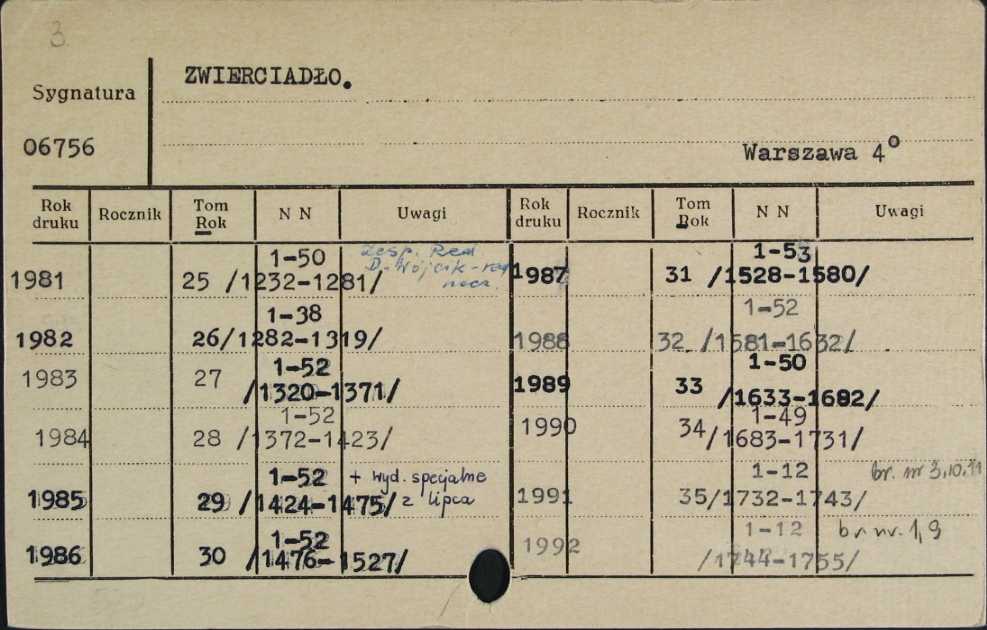 3
ZWIERCIADŁO.
Sygnatura
06756
Warszawa 4º
Rok druku Rocznik Tom Rok N N Uwagi Rok druku Rocznik Tom Rok N N Uwagi
1981 25 1-50 /1232-1281/ zesp. Red.
D. Wójcik
1982 26 1-38 /1282-1319/
1983 27 1-52 /1320-1371/
1984 28 1-52 /1372-1423/
1985 29 1-52 /1424-1475/ + wyd. specjalne
z lipca
1986 30 1-52 /1476-1527/
1987 31 1-53 /1528-1580/
1988 32 1-52 /1581-1632/
1989 33 1-50 /1633-1682/
1990 34 1-49 /1683-1731/
1991 35 1-12 /1732-1743/ br. nr 3,10,11
1992 1-12 /1744-1755/ br. nr. 1,9